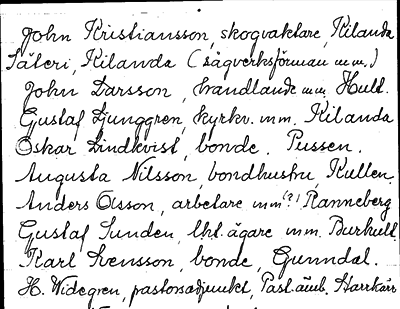 John Kristiansson, skogvaktare, Kilanda
Säteri, Kilanda (sågverksförman m.m.)
John Larsson, handlande m.m. Hult.
Gustaf Ljunggren, kyrkv. m.m. Kilanda
Oskar Lindkvist, bonde. Pussen.
Augusta Nilsson, bondhustru, Kullen.
Anders Olsson, arbetare m.m (?) Ranneberg
Gustaf Sunden, lht. ägare m.m. Burkull
Karl Svensson, bonde, Gunndal.
H. Widegren, pastorsadjunkt, Past. ämb. Starrkärr